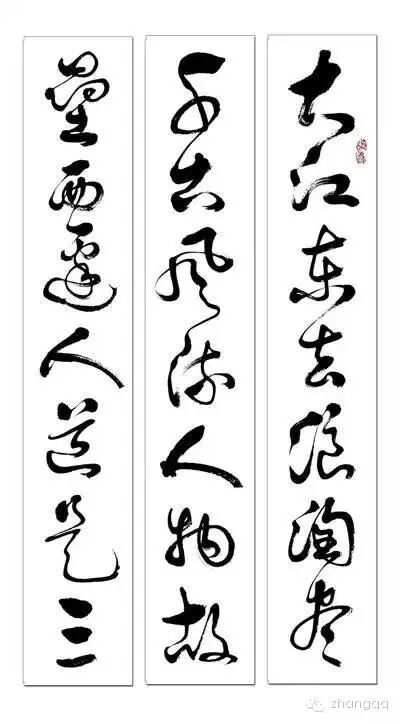 大江東去浪淘盡
千古風流人物故
壘西邊人道是三
zhangqq